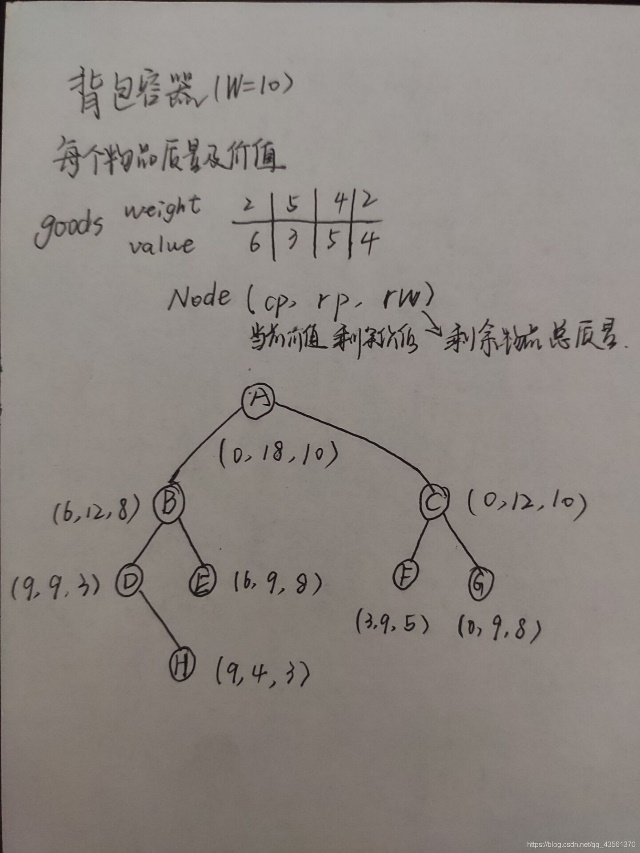 背包容器(W=10)
每个物品质量及价值
goods weight 2 5 4 2
value 6 3 5 4
Node (cp, rp, rw)
当前价值 剩余价值 剩余物品总质量.
A
(0, 18, 10)
(6, 12, 8) B C (0, 12, 10)
(9, 9, 3) D E (6, 9, 8) F G
(3, 9, 5) (0, 9, 8)
H (9, 4, 3)
https://blog.csdn.net/qq_43501370